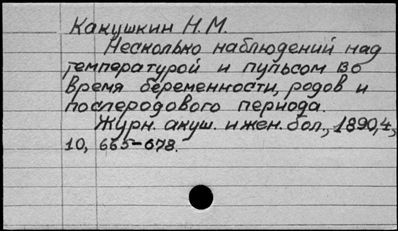 Какушкин Н.М.
Несколько наблюдений над
температурой и пульсом во
время беременности, родов и
послеродового периода.
Журн. акуш. и жен. бол., 1890,4,
10, 665-678.